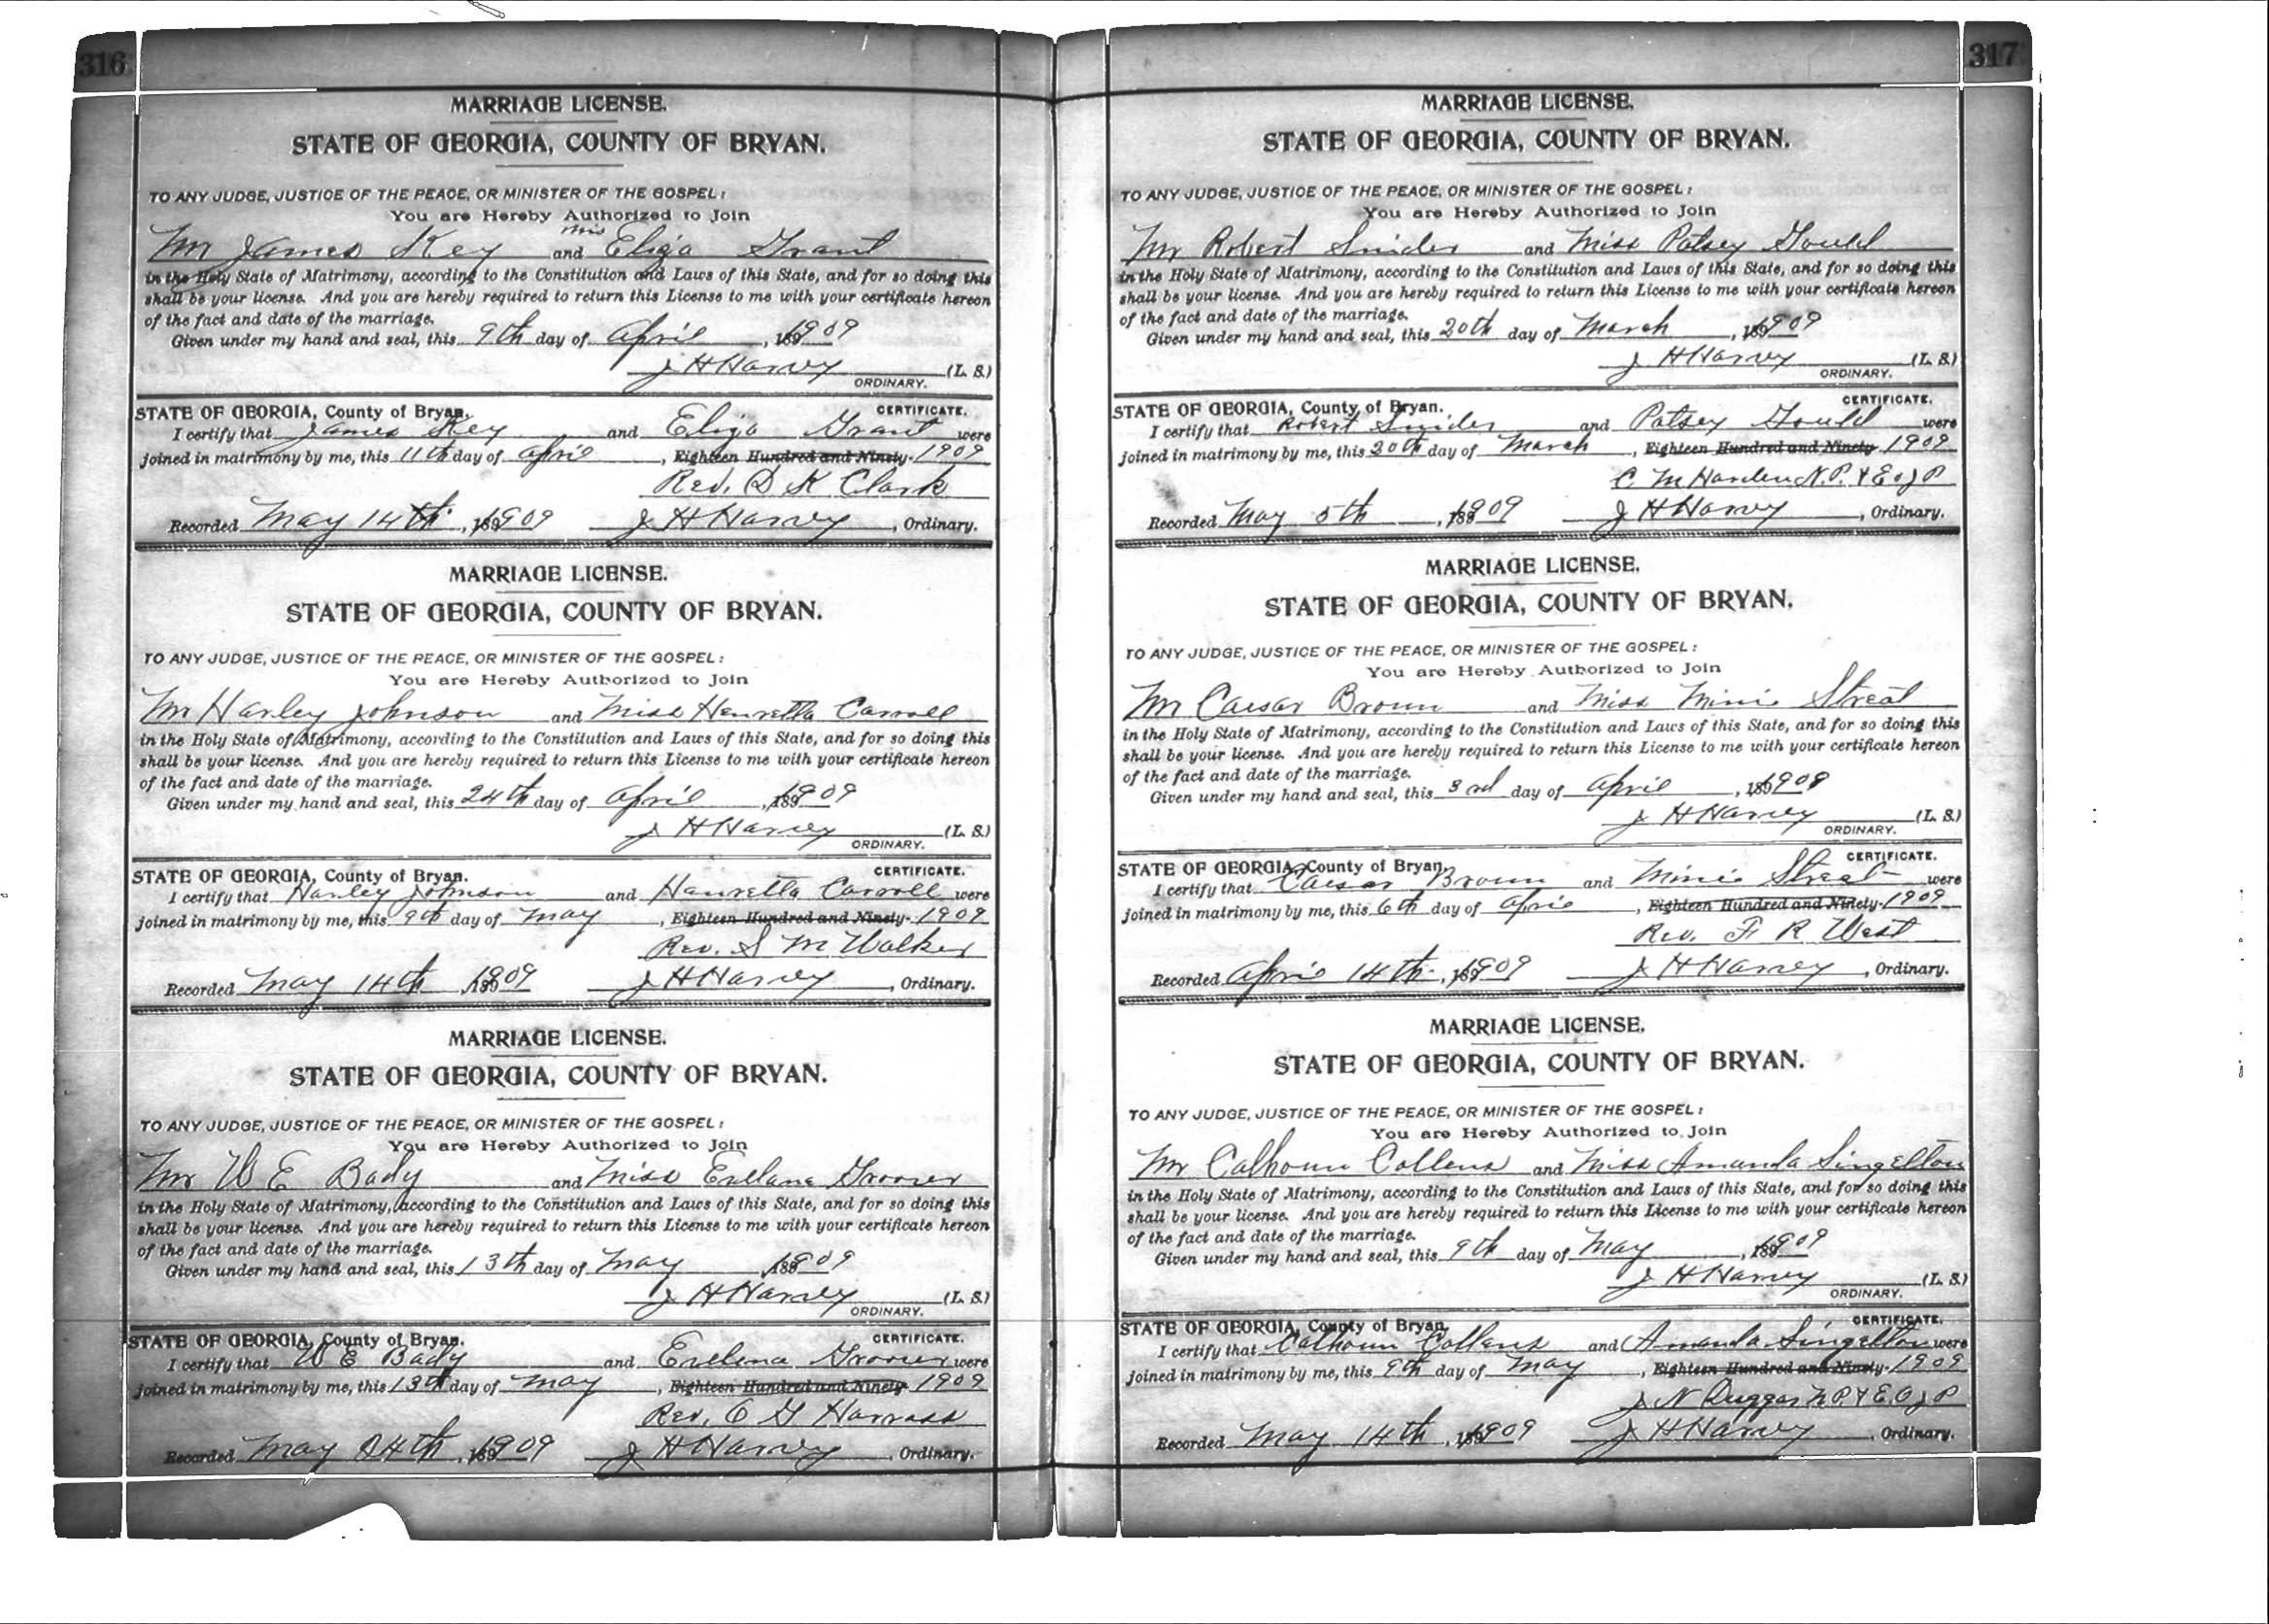 316
MARRIAGE LICENSE.
STATE OF GEORGIA, COUNTY OF BRYAN.
TO ANY JUDGE, JUSTICE OF THE PEACE, OR MINISTER OF THE GOSPEL:
You are Hereby Authorized to Join
Mr James Key and Miss Eliza Grant
in the Holy State of Matrimony, according to the Constitution and Laws of this State, and for so doing this
shall be your license. And you are hereby required to return this License to me with your certificate hereon
of the fact and date of the marriage.
Given under my hand and seal, this 9th day of April, 1909
J H Harvey (L. S.)
ORDINARY.
STATE OF GEORGIA, County of Bryan. CERTIFICATE.
I certify that James Key and Eliza Grant were
joined in matrimony by me, this 11th day of April, Eighteen Hundred and Ninety- 1909
Rev. D K Clark
Recorded May 14th, 1909 J H Harvey, Ordinary.
MARRIAGE LICENSE.
STATE OF GEORGIA, COUNTY OF BRYAN.
TO ANY JUDGE, JUSTICE OF THE PEACE, OR MINISTER OF THE GOSPEL:
You are Hereby Authorized to Join
Mr Harley Johnson and Miss Henretta Carroll
in the Holy State of Matrimony, according to the Constitution and Laws of this State, and for so doing this
shall be your license. And you are hereby required to return this License to me with your certificate hereon
of the fact and date of the marriage.
Given under my hand and seal, this 24th day of April, 1909
J H Harvey (L. S.)
ORDINARY.
STATE OF GEORGIA, County of Bryan. CERTIFICATE.
I certify that Harley Johnson and Henretta Carroll were
joined in matrimony by me, this 9th day of May, Eighteen Hundred and Ninety- 1909
Rev. S M Walker
Recorded May 14th, 1909 J H Harvey, Ordinary.
MARRIAGE LICENSE.
STATE OF GEORGIA, COUNTY OF BRYAN.
TO ANY JUDGE, JUSTICE OF THE PEACE, OR MINISTER OF THE GOSPEL:
You are Hereby Authorized to Join
Mr W E Bady and Miss Groover
in the Holy State of Matrimony, according to the Constitution and Laws of this State, and for so doing this
shall be your license. And you are hereby required to return this License to me with your certificate hereon
of the fact and date of the marriage.
Given under my hand and seal, this 13th day of May 1909
J H Harvey (L. S.)
ORDINARY.
STATE OF GEORGIA, County of Bryan. CERTIFICATE.
I certify that W E Bady and Evelena Groover were
joined in matrimony by me, this 13th day of May, Eighteen Hundred and Ninety 1909
Rev. C G
Recorded May 24th, 1909 J H Harvey, Ordinary.
317
MARRIAGE LICENSE.
STATE OF GEORGIA, COUNTY OF BRYAN.
TO ANY JUDGE, JUSTICE OF THE PEACE, OR MINISTER OF THE GOSPEL:
You are Hereby Authorized to Join
Mr Robert Snider and Miss Patsey Gould
in the Holy State of Matrimony, according to the Constitution and Laws of this State, and for so doing this
shall be your license. And you are hereby required to return this License to me with your certificate hereon
of the fact and date of the marriage.
Given under my hand and seal, this 20th day of March, 1909
J H Harvey (L. S.)
ORDINARY.
STATE OF GEORGIA, County of Bryan. CERTIFICATE.
I certify that Robert Snider and Patsey Gould were
joined in matrimony by me, this 20th day of March, Eighteen Hundred and Ninety 1909
C M Harden N.P. & E O J P
Recorded May 5th, 1909 J H Harvey, Ordinary.
MARRIAGE LICENSE.
STATE OF GEORGIA, COUNTY OF BRYAN.
TO ANY JUDGE, JUSTICE OF THE PEACE, OR MINISTER OF THE GOSPEL:
You are Hereby Authorized to Join
Mr Caesar Brown and Miss Minie Streat
in the Holy State of Matrimony, according to the Constitution and Laws of this State, and for so doing this
shall be your license. And you are hereby required to return this License to me with your certificate hereon
of the fact and date of the marriage.
Given under my hand and seal, this 3rd day of April, 1909
J H Harvey (L. S.)
ORDINARY.
STATE OF GEORGIA, County of Bryan. CERTIFICATE.
I certify that Caesar Brown and Minie Streat were
joined in matrimony by me, this 6th day of April, Eighteen Hundred and Ninety- 1909
Rev. F R West
Recorded April 14th, 1909 J H Harvey, Ordinary.
MARRIAGE LICENSE.
STATE OF GEORGIA, COUNTY OF BRYAN.
TO ANY JUDGE, JUSTICE OF THE PEACE, OR MINISTER OF THE GOSPEL:
You are Hereby Authorized to Join
Mr Calhoun Collens and Miss Amanda Singelton
in the Holy State of Matrimony, according to the Constitution and Laws of this State, and for so doing this
shall be your license. And you are hereby required to return this License to me with your certificate hereon
of the fact and date of the marriage.
Given under my hand and seal, this 9th day of May, 1909
J H Harvey (L. S.)
ORDINARY.
STATE OF GEORGIA, County of Bryan. CERTIFICATE.
I certify that Calhoun Collens and Amanda Singelton were
joined in matrimony by me, this 9th day of May, Eighteen Hundred and Ninety- 1909
J N Duggar N.P. & E O J P
Recorded May 14th, 1909 J H Harvey, Ordinary.